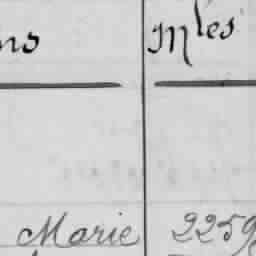 ns Mles
Marie 2259